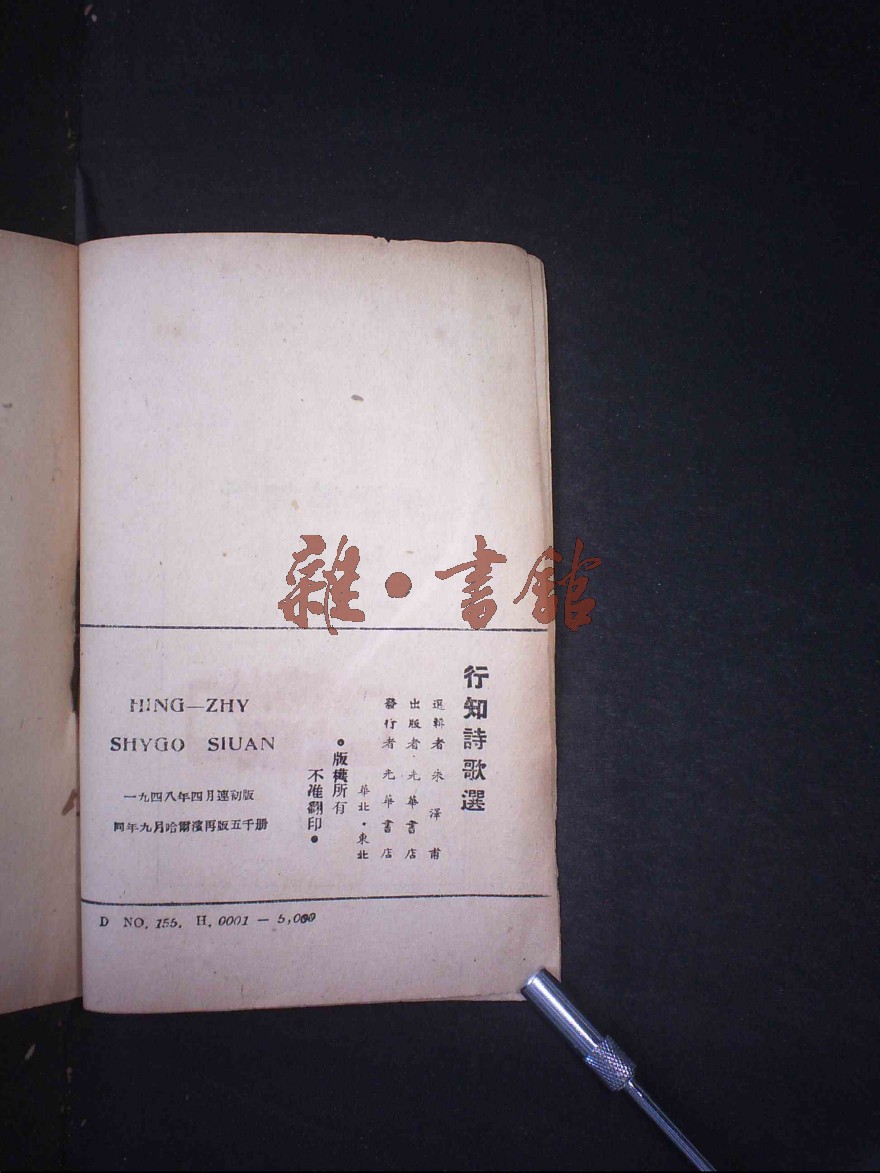 雜·書館
行知詩歌選
選輯者 朱澤甫
出版者·光華書店
發行者 光華書店
華北·東北
●版權所有
不准翻印●
HING—ZHY
SHYGO SIUAN
一九四八年四月連初版
同年九月哈爾濱再版五千册
D NO. 155. H. 0001 — 5,000